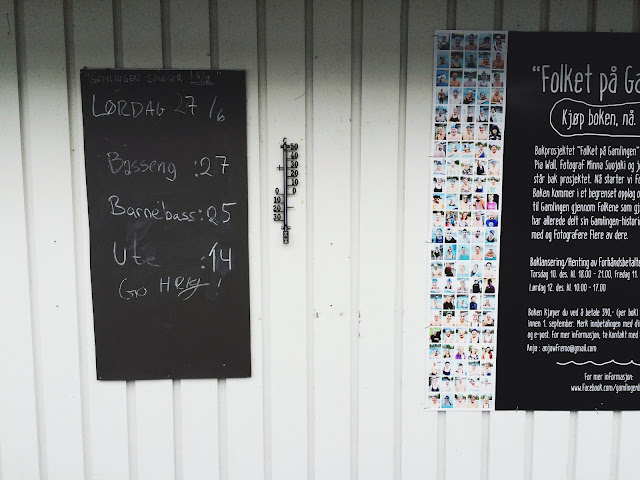 "GAMLINGEN SVARER
LØRDAG 27/6
Basseng :27
Barnebass:25
Ute :14
GOD HELG!
C
50
50
"Folket på Ga
Kjøp boken, nå.
Bokprosjektet "Folket på Gamlingen"
Pia Wall, Fotograf Minna Suojoki og
står bak prosjektet. Nå starter vi
Boken kommer i et begrenset opplag
til Gamlingen gjennom folkene som
har allerede delt sin Gamlingen-histori
med og fotografere flere av dere.
Boklansering/Henting av forhåndsbetalte
Torsdag 10. des. kl. 18.00 - 21.00, Fredag 11.
Lørdag 12. des. 10.00 - 17.00
Boken kjøper du ved å betale 390,- (per bok)
innen 1. september. Merk innbetalingen med
og e-post. For mer informasjon, ta kontakt med
Anja: anjawfremo@gmail.com
For mer informasjon:
www.facebook.com/gamlingenb